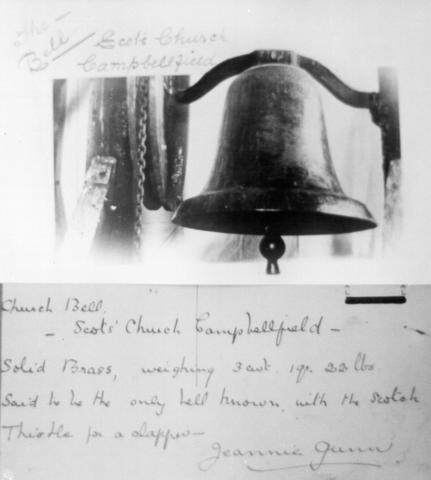 The
Bell
Scots Church
Campbellfield
Church Bell.
- Scots' Church Campbellfield -
Solid Brass, weighing 3 cwt. 1 qr. 22 lbs
Said to be the only bell known, with the Scotch
Thistle for a clapper -
Jeannie Gunn